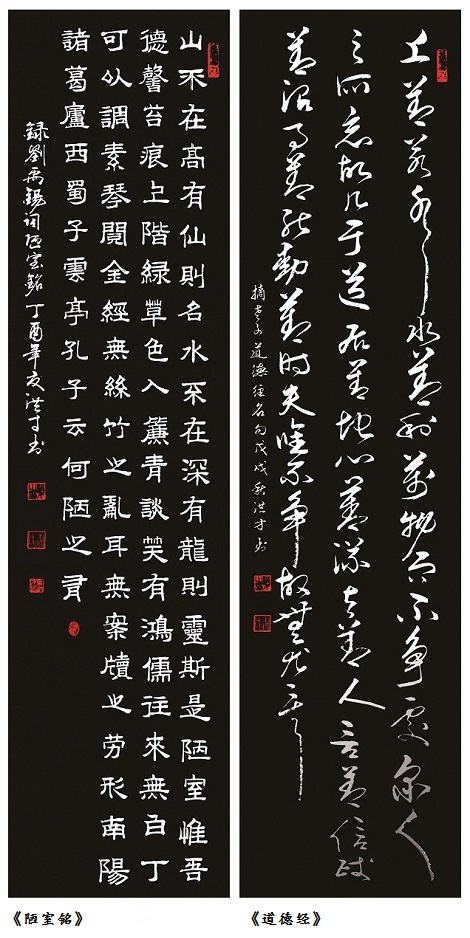 上善若水水善利萬物而不争處衆人
之所惡故几于道居善地心善渊与善人言善信政
善治事善能動善时夫唯不争故無尤
摘老子道德经名句戊戌秋洪才书
山不在高有仙則名水不在深有龍則靈斯是陋室惟吾
德馨苔痕上階緑草色入簾青談笑有鴻儒往來無白丁
可以調素琴閲金經無絲竹之亂耳無案牘之勞形南陽
諸葛廬西蜀子雲亭孔子云何陋之有
録劉禹錫词陋室銘丁酉年夏洪才书
《陋室铭》
《道德经》